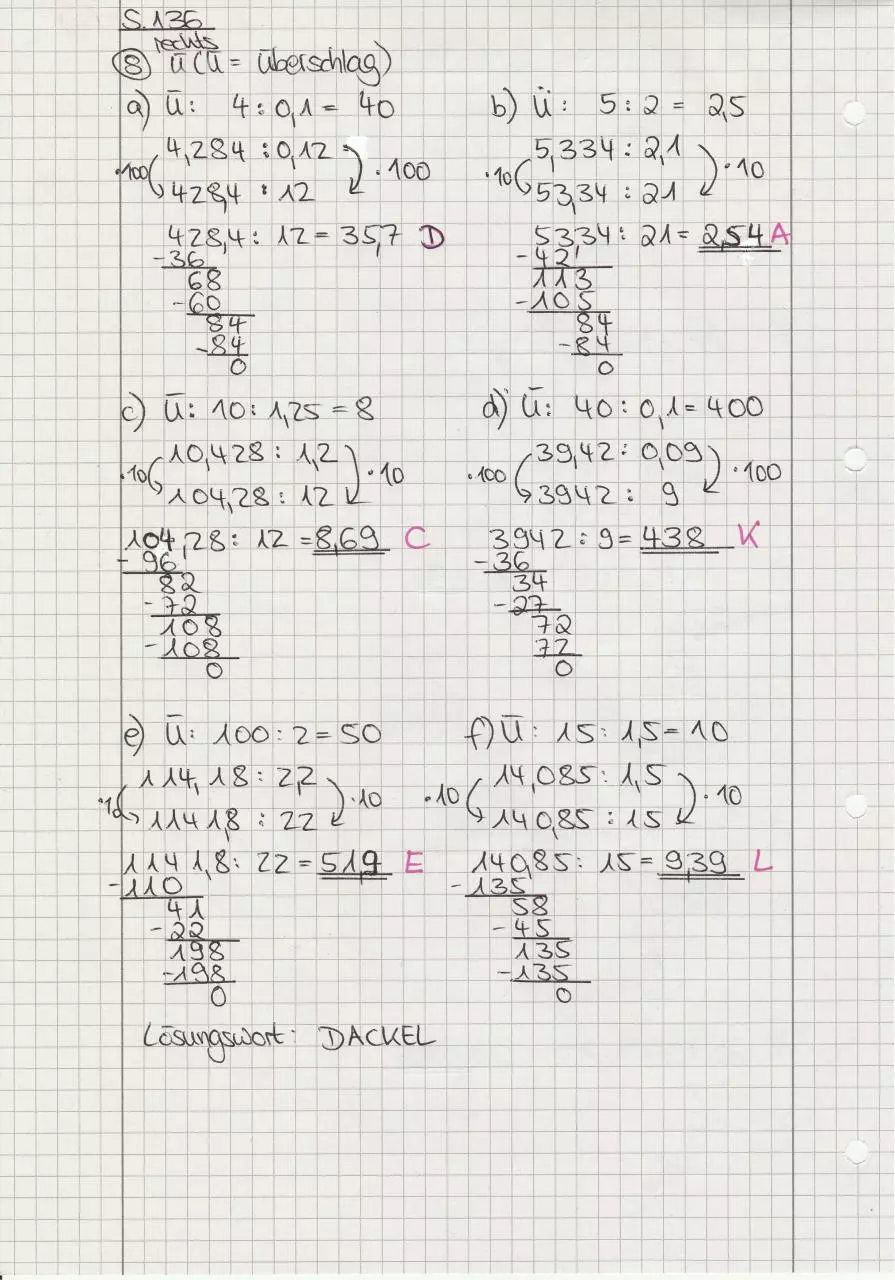 S. 136
rechts
⑧ Ü (Ü = Überschlag)
a) Ü: 4 : 0,1 = 40
4,284 : 0,12
·100 ·100
428,4 : 12
428,4 : 12 = 35,7 D
-36
68
-60
84
-84
0
b) Ü: 5 : 2 = 2,5
5,334 : 2,1
·10 ·10
53,34 : 21
53,34 : 21 = 2,54 A
-42
113
-105
84
-84
0
c) Ü: 10 : 1,25 = 8
10,428 : 1,2
·10 ·10
104,28 : 12
104,28 : 12 = 8,69 C
-96
82
-72
108
-108
0
d) Ü: 40 : 0,1 = 400
39,42 : 0,09
·100 ·100
3942 : 9
3942 : 9 = 438 K
-36
34
-27
72
72
0
e) Ü: 100 : 2 = 50
114,18 : 2,2
·10 ·10
1141,8 : 22
1141,8 : 22 = 51,9 E
-110
41
-22
198
-198
0
f) Ü: 15 : 1,5 = 10
14,085 : 1,5
·10 ·10
140,85 : 15
140,85 : 15 = 9,39 L
-135
58
-45
135
-135
0
Lösungswort: DACKEL